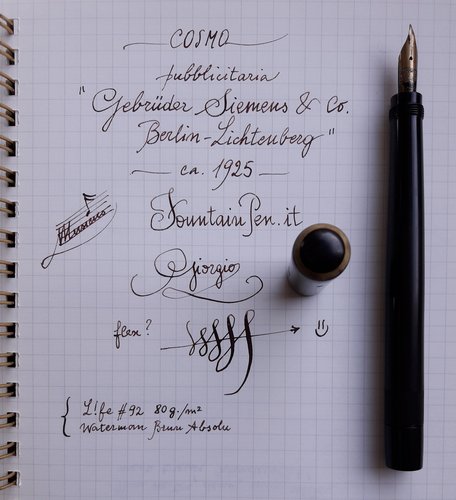 COSMO
pubblicitaria
"Gebrüder Siemens & Co.
Berlin-Lichtenberg"
— ca. 1925 —
FountainPen.it
Giorgio
flex?
{ L!fe #92 80g./m²
Waterman Brun Absolu